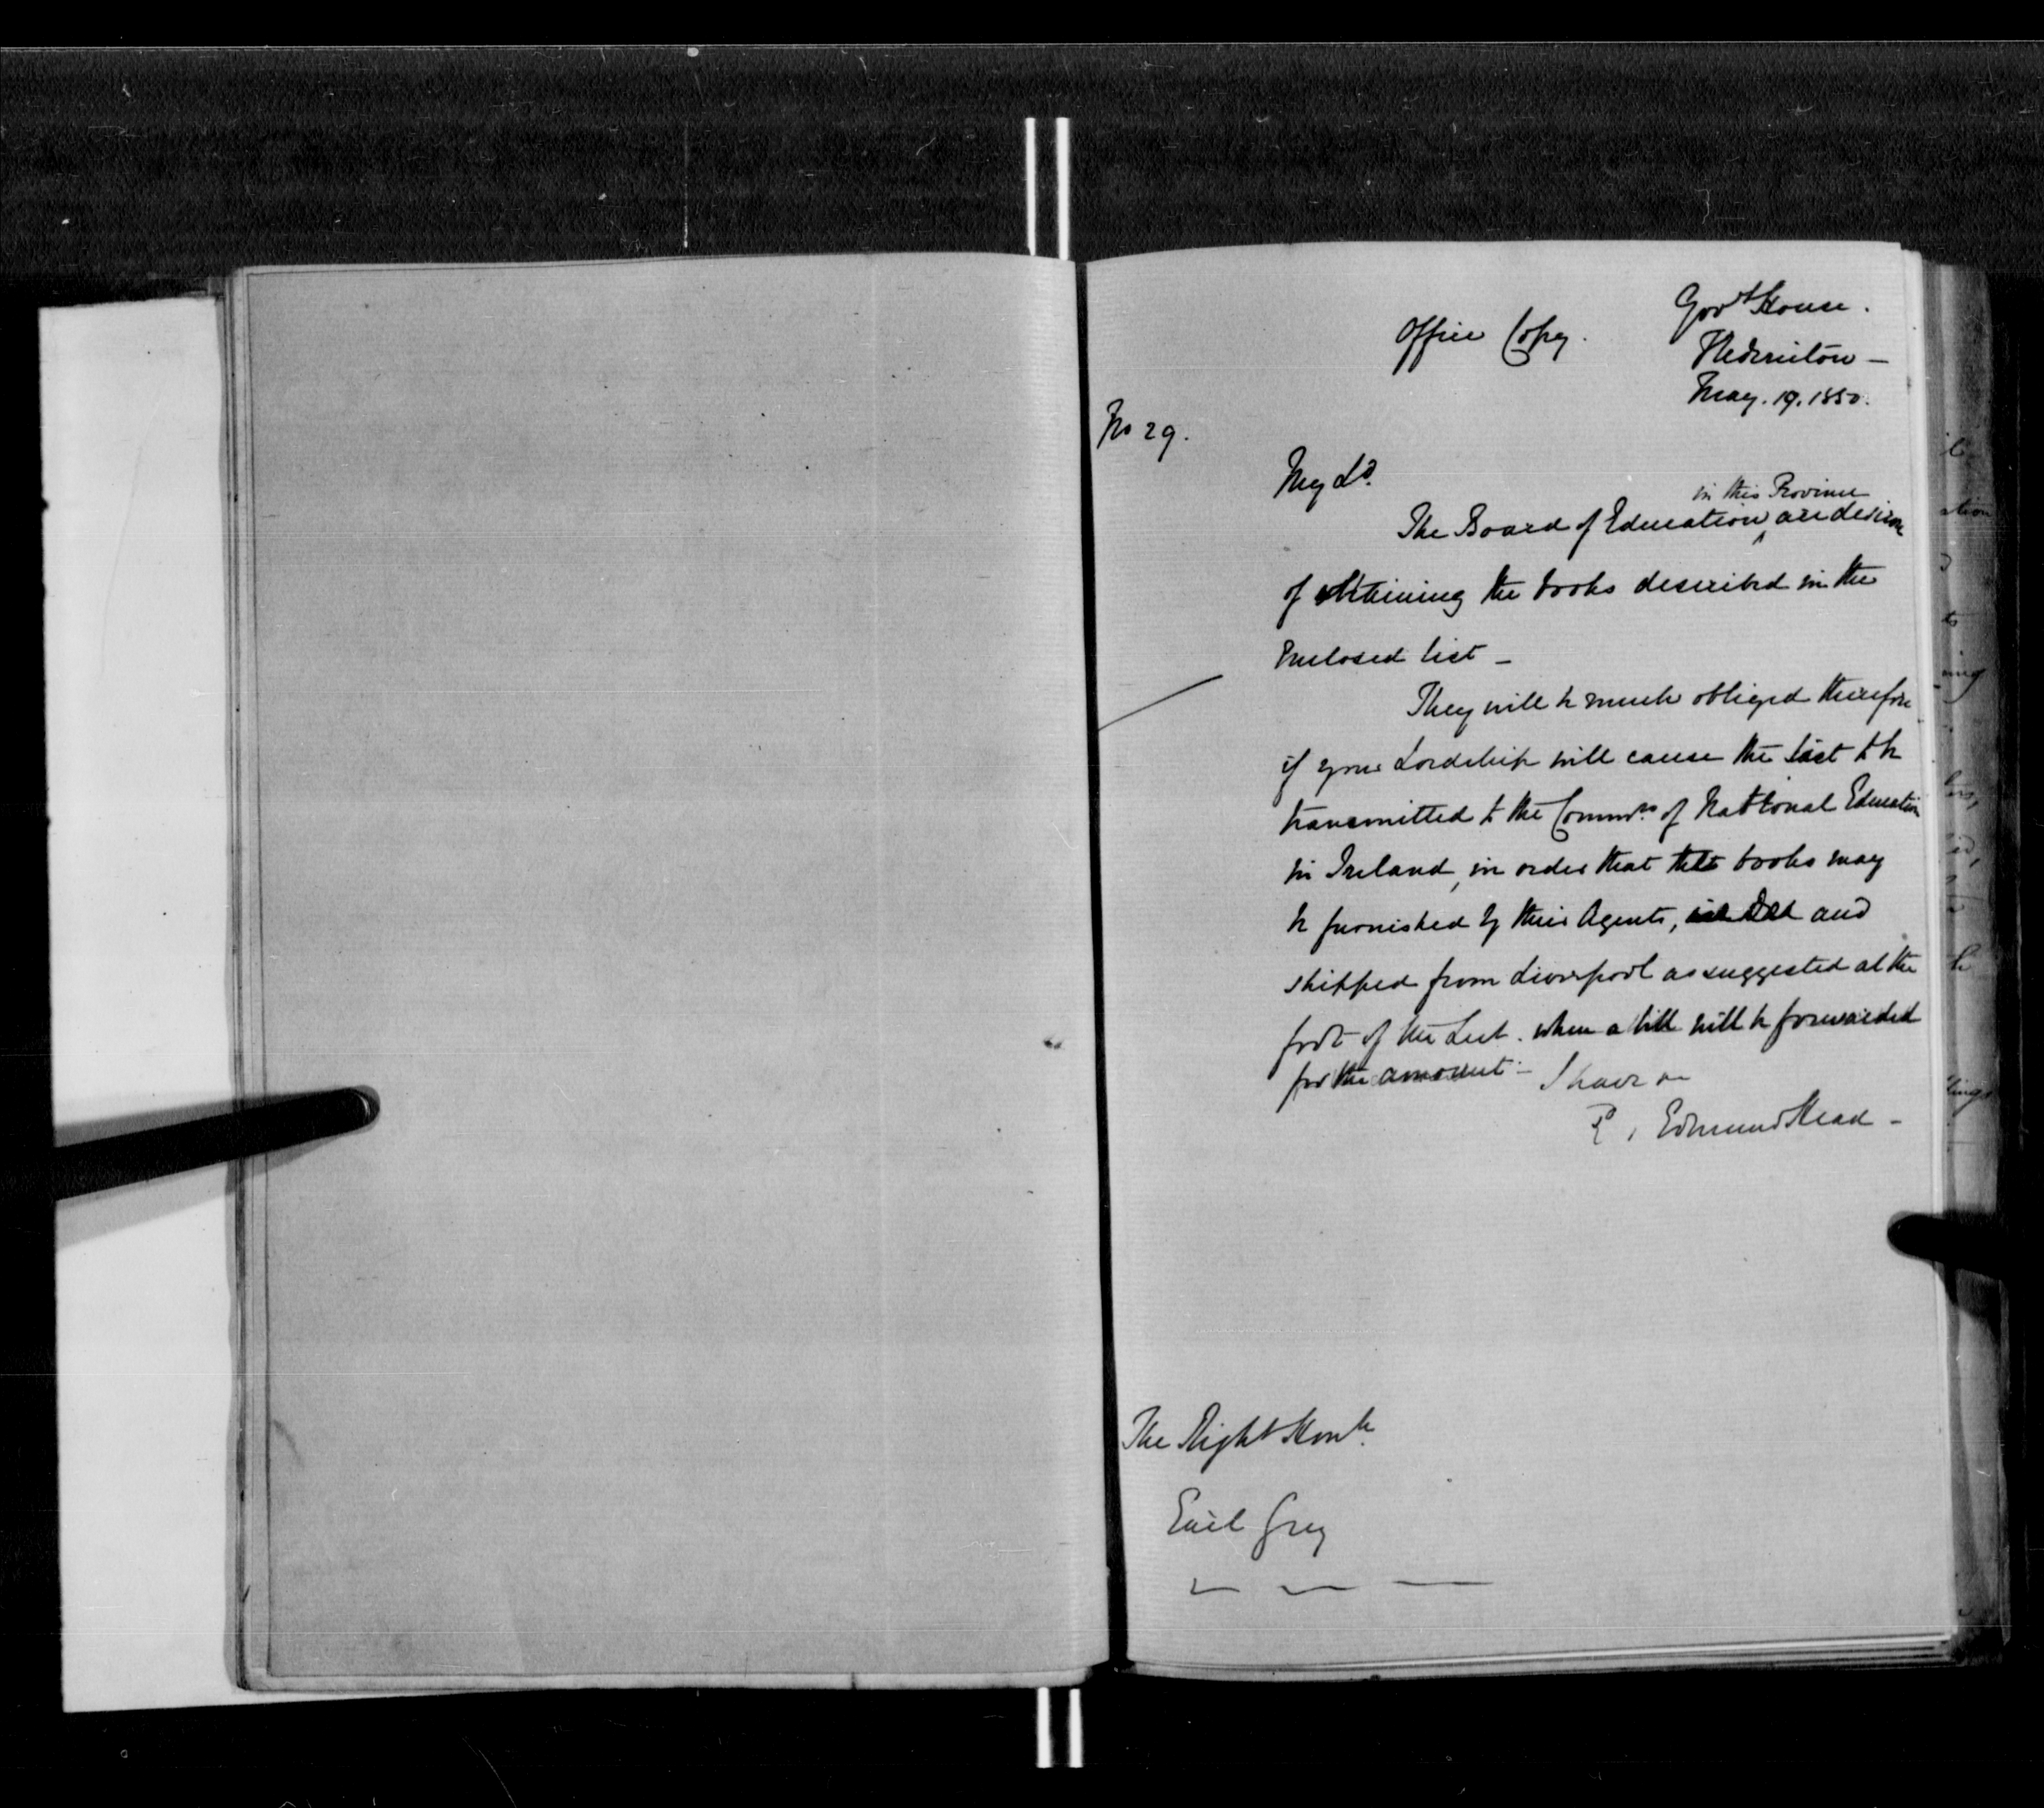 Office Copy.
Govt House.
Fredericton —
May. 19. 1850.
No 29.
My Ld.
in this Province
The Board of Education ^ are desirous
of obtaining the books described in the
Enclosed list —
They will be much obliged therefore
if your Lordship will cause the List to be
transmitted to the Commrs. of National Education
in Ireland, in order that the books may
be furnished by their Agents, and
shipped from Liverpool as suggested at the
foot of the List. when a bill will be forwarded
for the amount — I have &c
Edmund Head —
The Right Honble.
Earl Grey